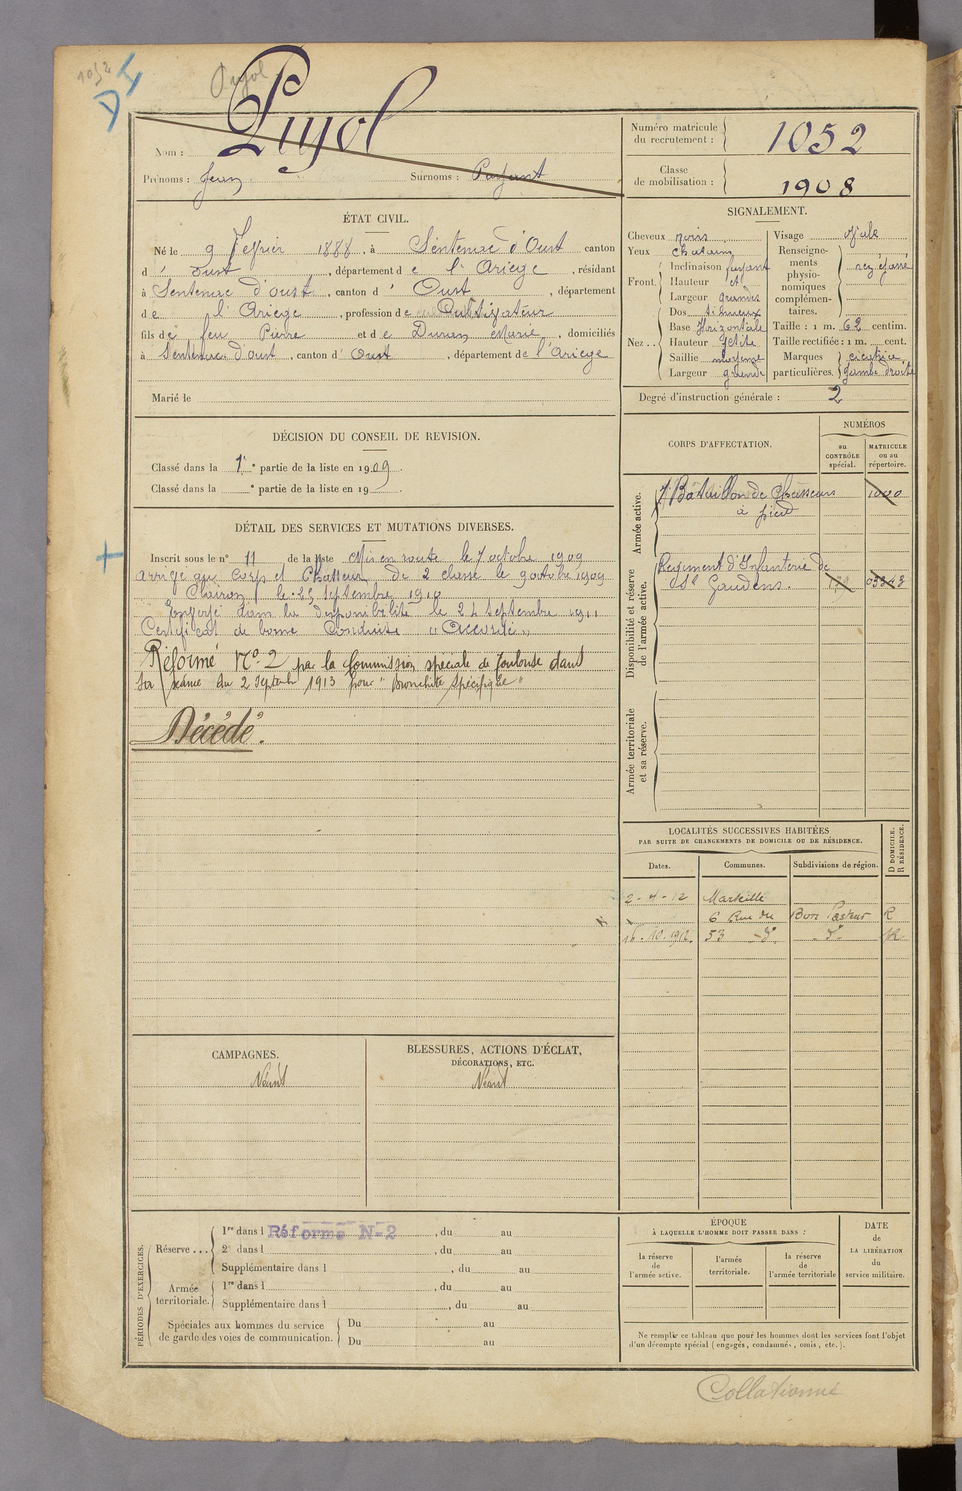 1052
D I
Pujol
Nom : Pujol
Prénoms : Jean Surnoms :
Numéro matricule du recrutement : 1052
Classe de mobilisation : 1908
ÉTAT CIVIL.
Né le 9 Février 1888, à Sentenac d'Oust canton
d' Oust, département de l'Ariège, résidant
à Sentenac d'oust, canton d' Oust, département
de l'Ariège, profession de Cultivateur
fils de feu Pierre et de Dunan Marie, domiciliés
à Sentenac d'oust, canton d' Oust, département de l'Ariège
Marié le
SIGNALEMENT.
Cheveux noirs
Yeux chatain
Front. Inclinaison fuyant
Hauteur
Largeur grandes
Nez.. Dos sinueux
Base Horizontale
Hauteur petite
Saillie moyenne
Largeur grande
Visage ovale
Renseignements physionomiques complémentaires.
Taille : 1 m. 62 centim.
Taille rectifiée : 1 m. cent.
Marques particulières. cicatrice gambe droite
Degré d'instruction générale : 2
DÉCISION DU CONSEIL DE REVISION.
Classé dans la 1e partie de la liste en 1909.
Classé dans la e partie de la liste en 19 .
DÉTAIL DES SERVICES ET MUTATIONS DIVERSES.
Inscrit sous le n° 11 de la liste Mis en route le 7 octobre 1909
arrivé au corps et Chasseur de 2 classe le 9 octobre 1909
Clairon le 25 septembre 1910
dans la disponibilité le 24 septembre 1911
Certificat de bonne Conduite "Accordé"
Réformé No 2 par la Commission spéciale de Toulouse dans
sa séance du 2 septembre 1913 pour "Bronchite Spécifique"
Décédé.
CORPS D'AFFECTATION.
NUMÉROS
au CONTRÔLE spécial.
MATRICULE ou au répertoire.
Armée active.
7e Bataillon de Chasseurs
à pied
1000
Disponibilité et réserve de l'armée active.
Régiment d'Infanterie de
St Gaudens.
03343
Armée territoriale et sa réserve.
LOCALITÉS SUCCESSIVES HABITÉES
PAR SUITE DE CHANGEMENTS DE DOMICILE OU DE RÉSIDENCE.
Dates. Communes. Subdivisions de région. D DOMICILE. R RÉSIDENCE.
2-4-12 Marseille
6 Rue du Bon Pasteur R
16-10-1912 53 -d°- -d°- R
CAMPAGNES.
Néant
BLESSURES, ACTIONS D'ÉCLAT,
DÉCORATIONS, ETC.
Néant
PÉRIODES D'EXERCICES.
Réserve ... 1re dans l Réforme N-2, du au
2e dans l , du au
Supplémentaire dans l , du au
Armée territoriale. 1re dans l , du au
Supplémentaire dans l , du au
Spéciales aux hommes du service de garde des voies de communication. Du au
Du au
ÉPOQUE
À LAQUELLE L'HOMME DOIT PASSER DANS :
la réserve de l'armée active.
l'armée territoriale.
la réserve de l'armée territoriale
DATE DE LA LIBÉRATION du service militaire.
Ne remplir ce tableau que pour les hommes dont les services font l'objet
d'un décompte spécial (engagés, condamnés, omis, etc.).
Collationné